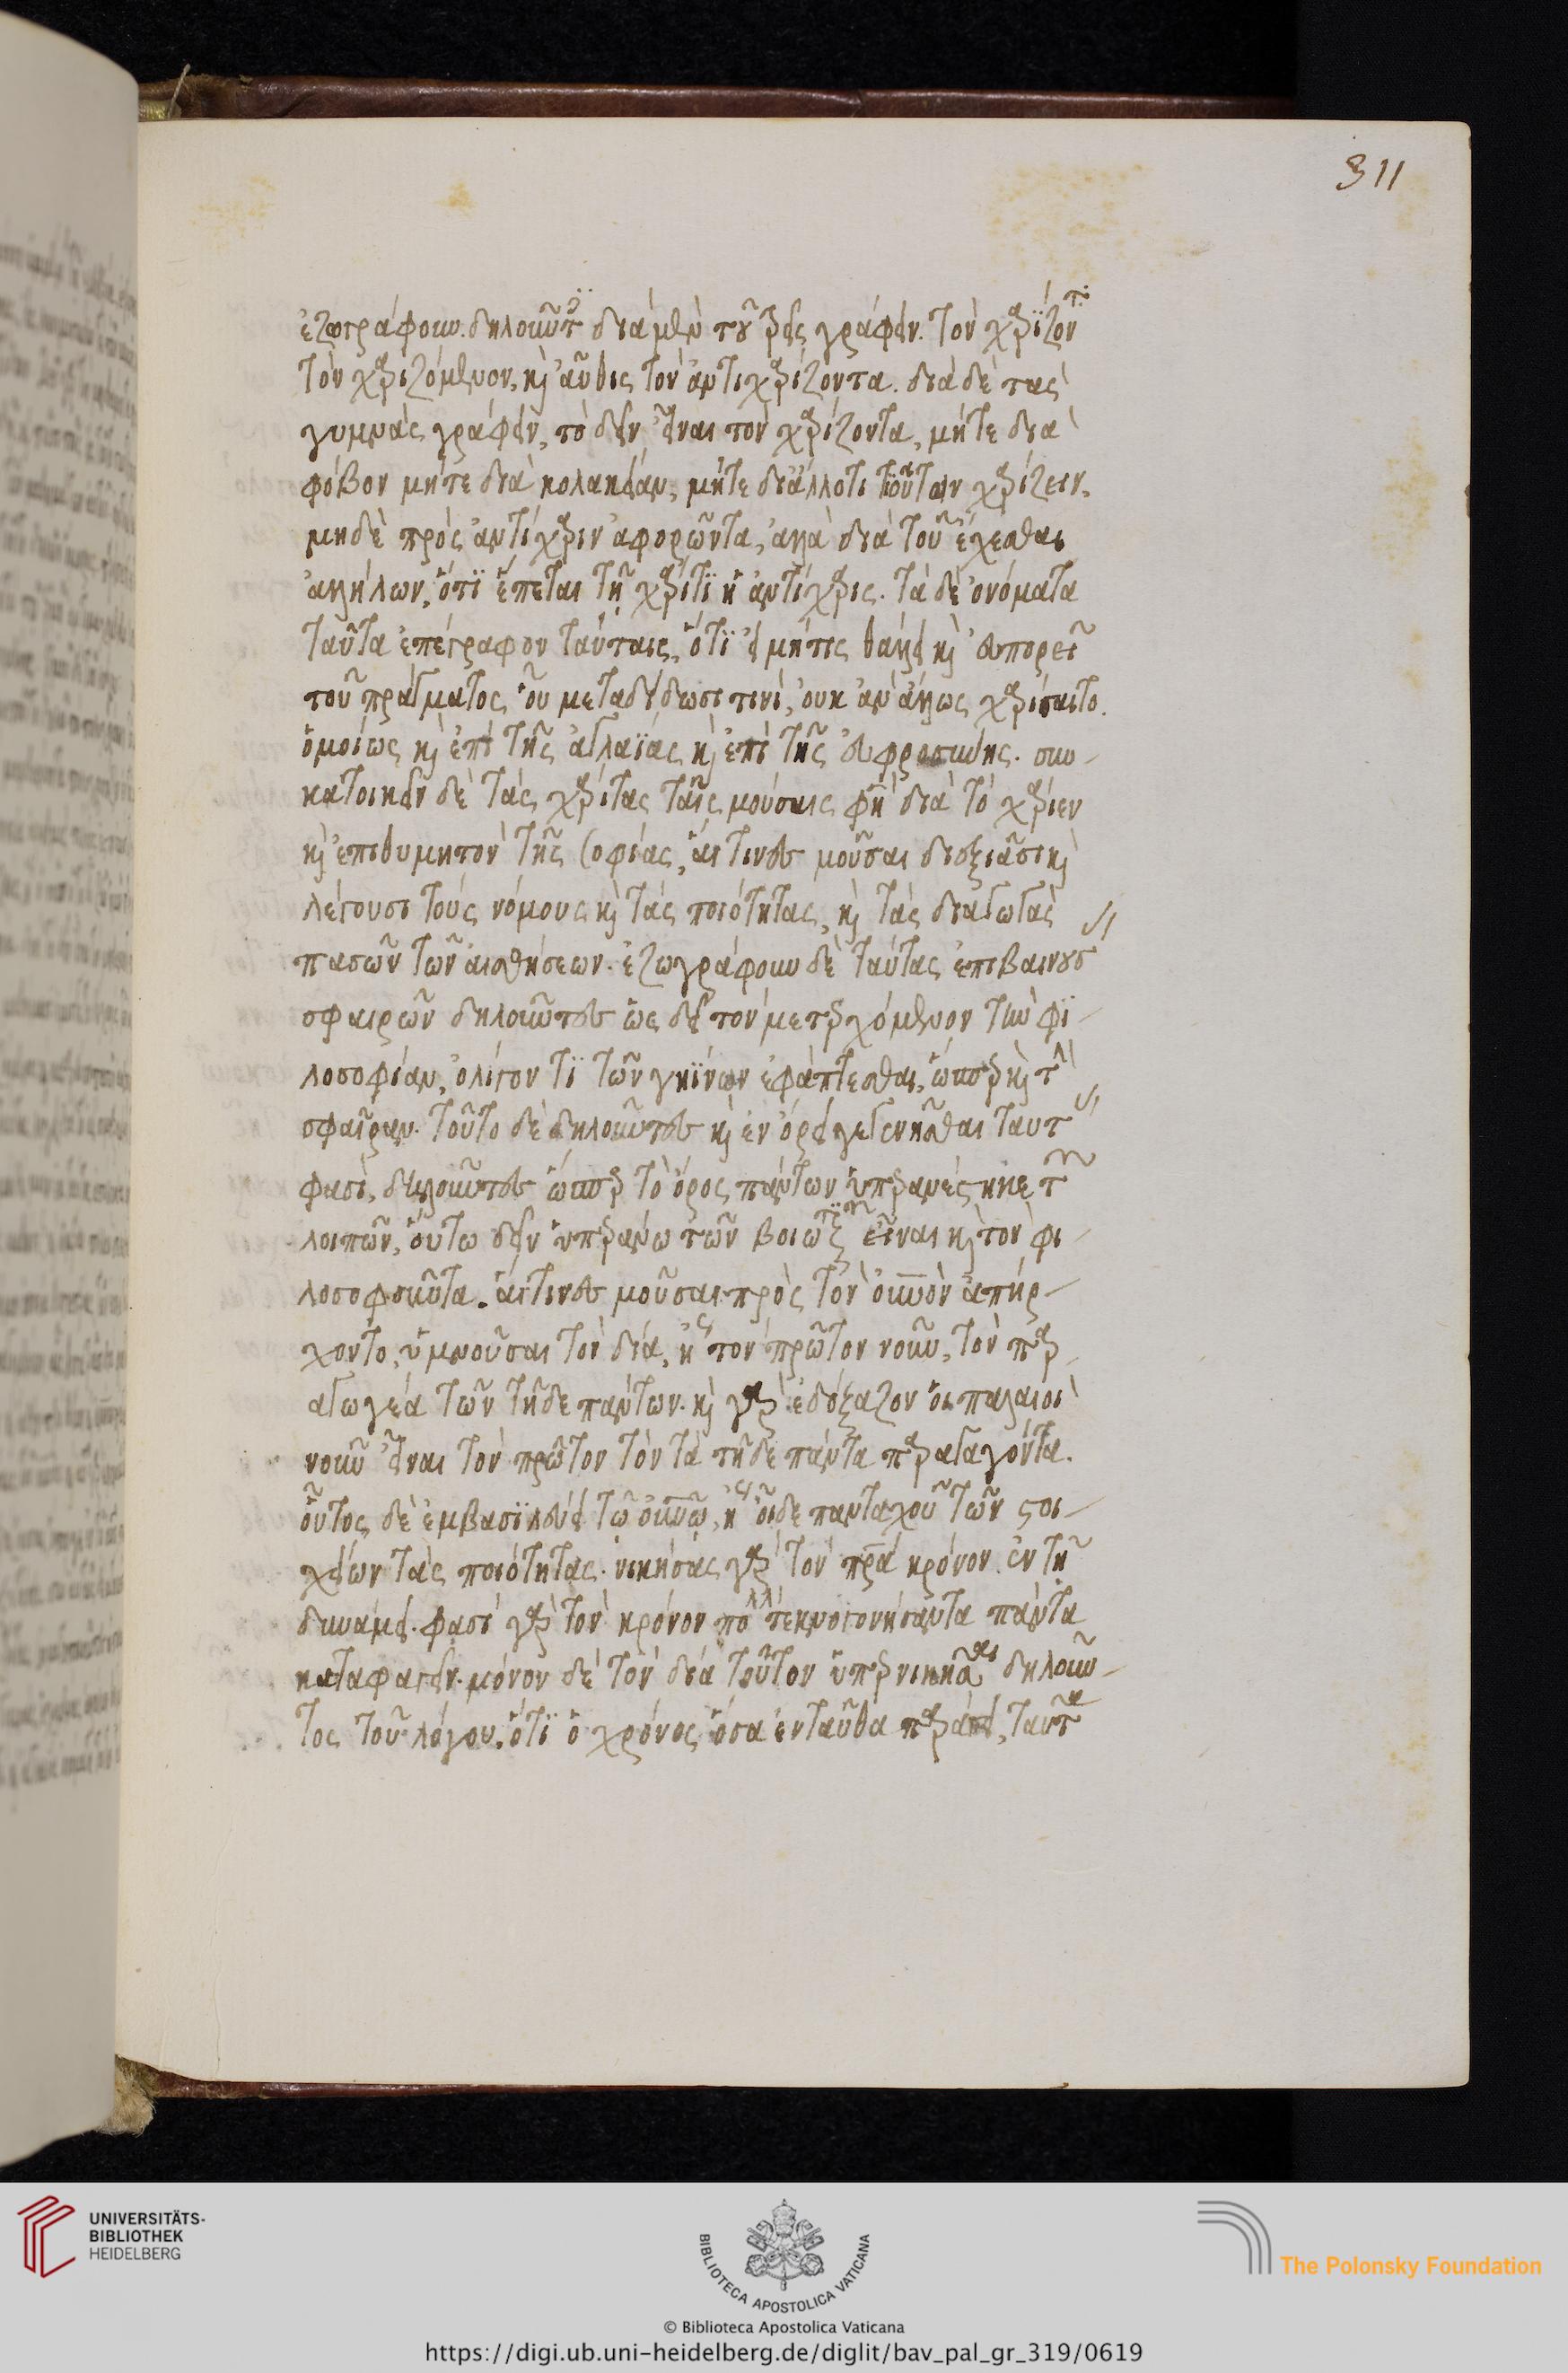 311
ἐζωγράφουν. δηλοῦντες διὰ μὲν τοῦ τρεῖς γράφειν. τὸν χαρίζοντα
τὸν χαριζόμενον, καὶ αὖθις τὸν ἀντιχαρίζοντα. διὰ δὲ τὰς
γυμνὰς γράφειν, τὸ δεῖν εἶναι τὸν χαρίζοντα, μήτε διὰ
φόβον μήτε διὰ κολακείαν, μήτε δι' ἄλλό τι τοιοῦτον χαρίζειν,
μηδὲ πρὸς ἀντίχαριν ἀφορῶντα, ἀλλὰ διὰ τοῦ ἔχεσθαι
ἀλλήλων, ὅτι ἕπεται τῇ χάριτι ἡ ἀντίχαρις. τὰ δὲ ὀνόματα
ταῦτα ἐπέγραφον ταύταις, ὅτι εἰ μή τις θάλλει καὶ εὐπορεῖ
τοῦ πράγματος, οὗ μεταδίδωσί τινι, οὐκ ἂν ἄλλως χαρίσαιτο.
ὁμοίως καὶ ἐπὶ τῆς ἀγλαΐας καὶ ἐπὶ τῆς εὐφροσύνης. συν-
κατοικεῖν δὲ τὰς χάριτας ταῖς μούσαις φησὶ διὰ τὸ χαρίεν
καὶ ἐπιθυμητὸν τῆς σοφίας, αἵτινες μοῦσαι διεξιᾶσι καὶ
λέγουσι τοὺς νόμους καὶ τὰς ποιότητας, καὶ τὰς διαγωγὰς
πασῶν τῶν αἰσθήσεων. ἐζωγράφουν δὲ ταύτας ἐπιβαινούσας
σφαιρῶν δηλοῦντες ὡς δεῖ τὸν μετερχόμενον τὴν φι-
λοσοφίαν, ὀλίγον τι τῶν γηΐνων ἐφάπτεσθαι, ὥσπερ καὶ τὴν
σφαῖραν. τοῦτο δὲ δηλοῦντες καὶ ἐν ὄρει γεγενῆσθαι ταύτας
φασί, δηλοῦντες ὥσπερ τὸ ὄρος πάντων ὑπερανέστηκε τῶν
λοιπῶν, οὕτω δεῖν ὑπεράνω τῶν βιωτικῶν εἶναι καὶ τὸν φι-
λοσοφοῦντα. αἵτινες μοῦσαι πρὸς τὸν οὐνὸν ἀπήρ-
χοντο, ὑμνοῦσαι τὸν δία, ἤγουν τὸν πρῶτον νοῦν, τὸν παρ-
αγωγέα τῶν τῇδε πάντων. καὶ γὰρ ἐδόξαζον οἱ παλαιοὶ
νοῦν εἶναι τὸν πρῶτον τὸν τὰ τῇδε πάντα παραγαγόντα.
οὗτος δὲ ἐμβασιλεύει τῷ οὐνῷ, ἤγουν οἶδε πανταχοῦ τῶν στοι-
χείων τὰς ποιότητας. νικήσας γὰρ τὸν πρα κρόνον ἐν τῇ
δυνάμει. φασὶ γὰρ τὸν κρόνον πολλὰ τεκνογονήσαντα πάντα
καταφαγεῖν. μόνον δὲ τὸν δία τοῦτον ὑπερνικῆσαι δηλοῦν-
τος τοῦ λόγου, ὅτι ὁ χρόνος ὅσα ἐνταῦθα παράγει, ταῦτα
UNIVERSITÄTS-
BIBLIOTHEK
HEIDELBERG
BIBLIOTECA APOSTOLICA VATICANA
The Polonsky Foundation
© Biblioteca Apostolica Vaticana
https://digi.ub.uni-heidelberg.de/diglit/bav_pal_gr_319/0619